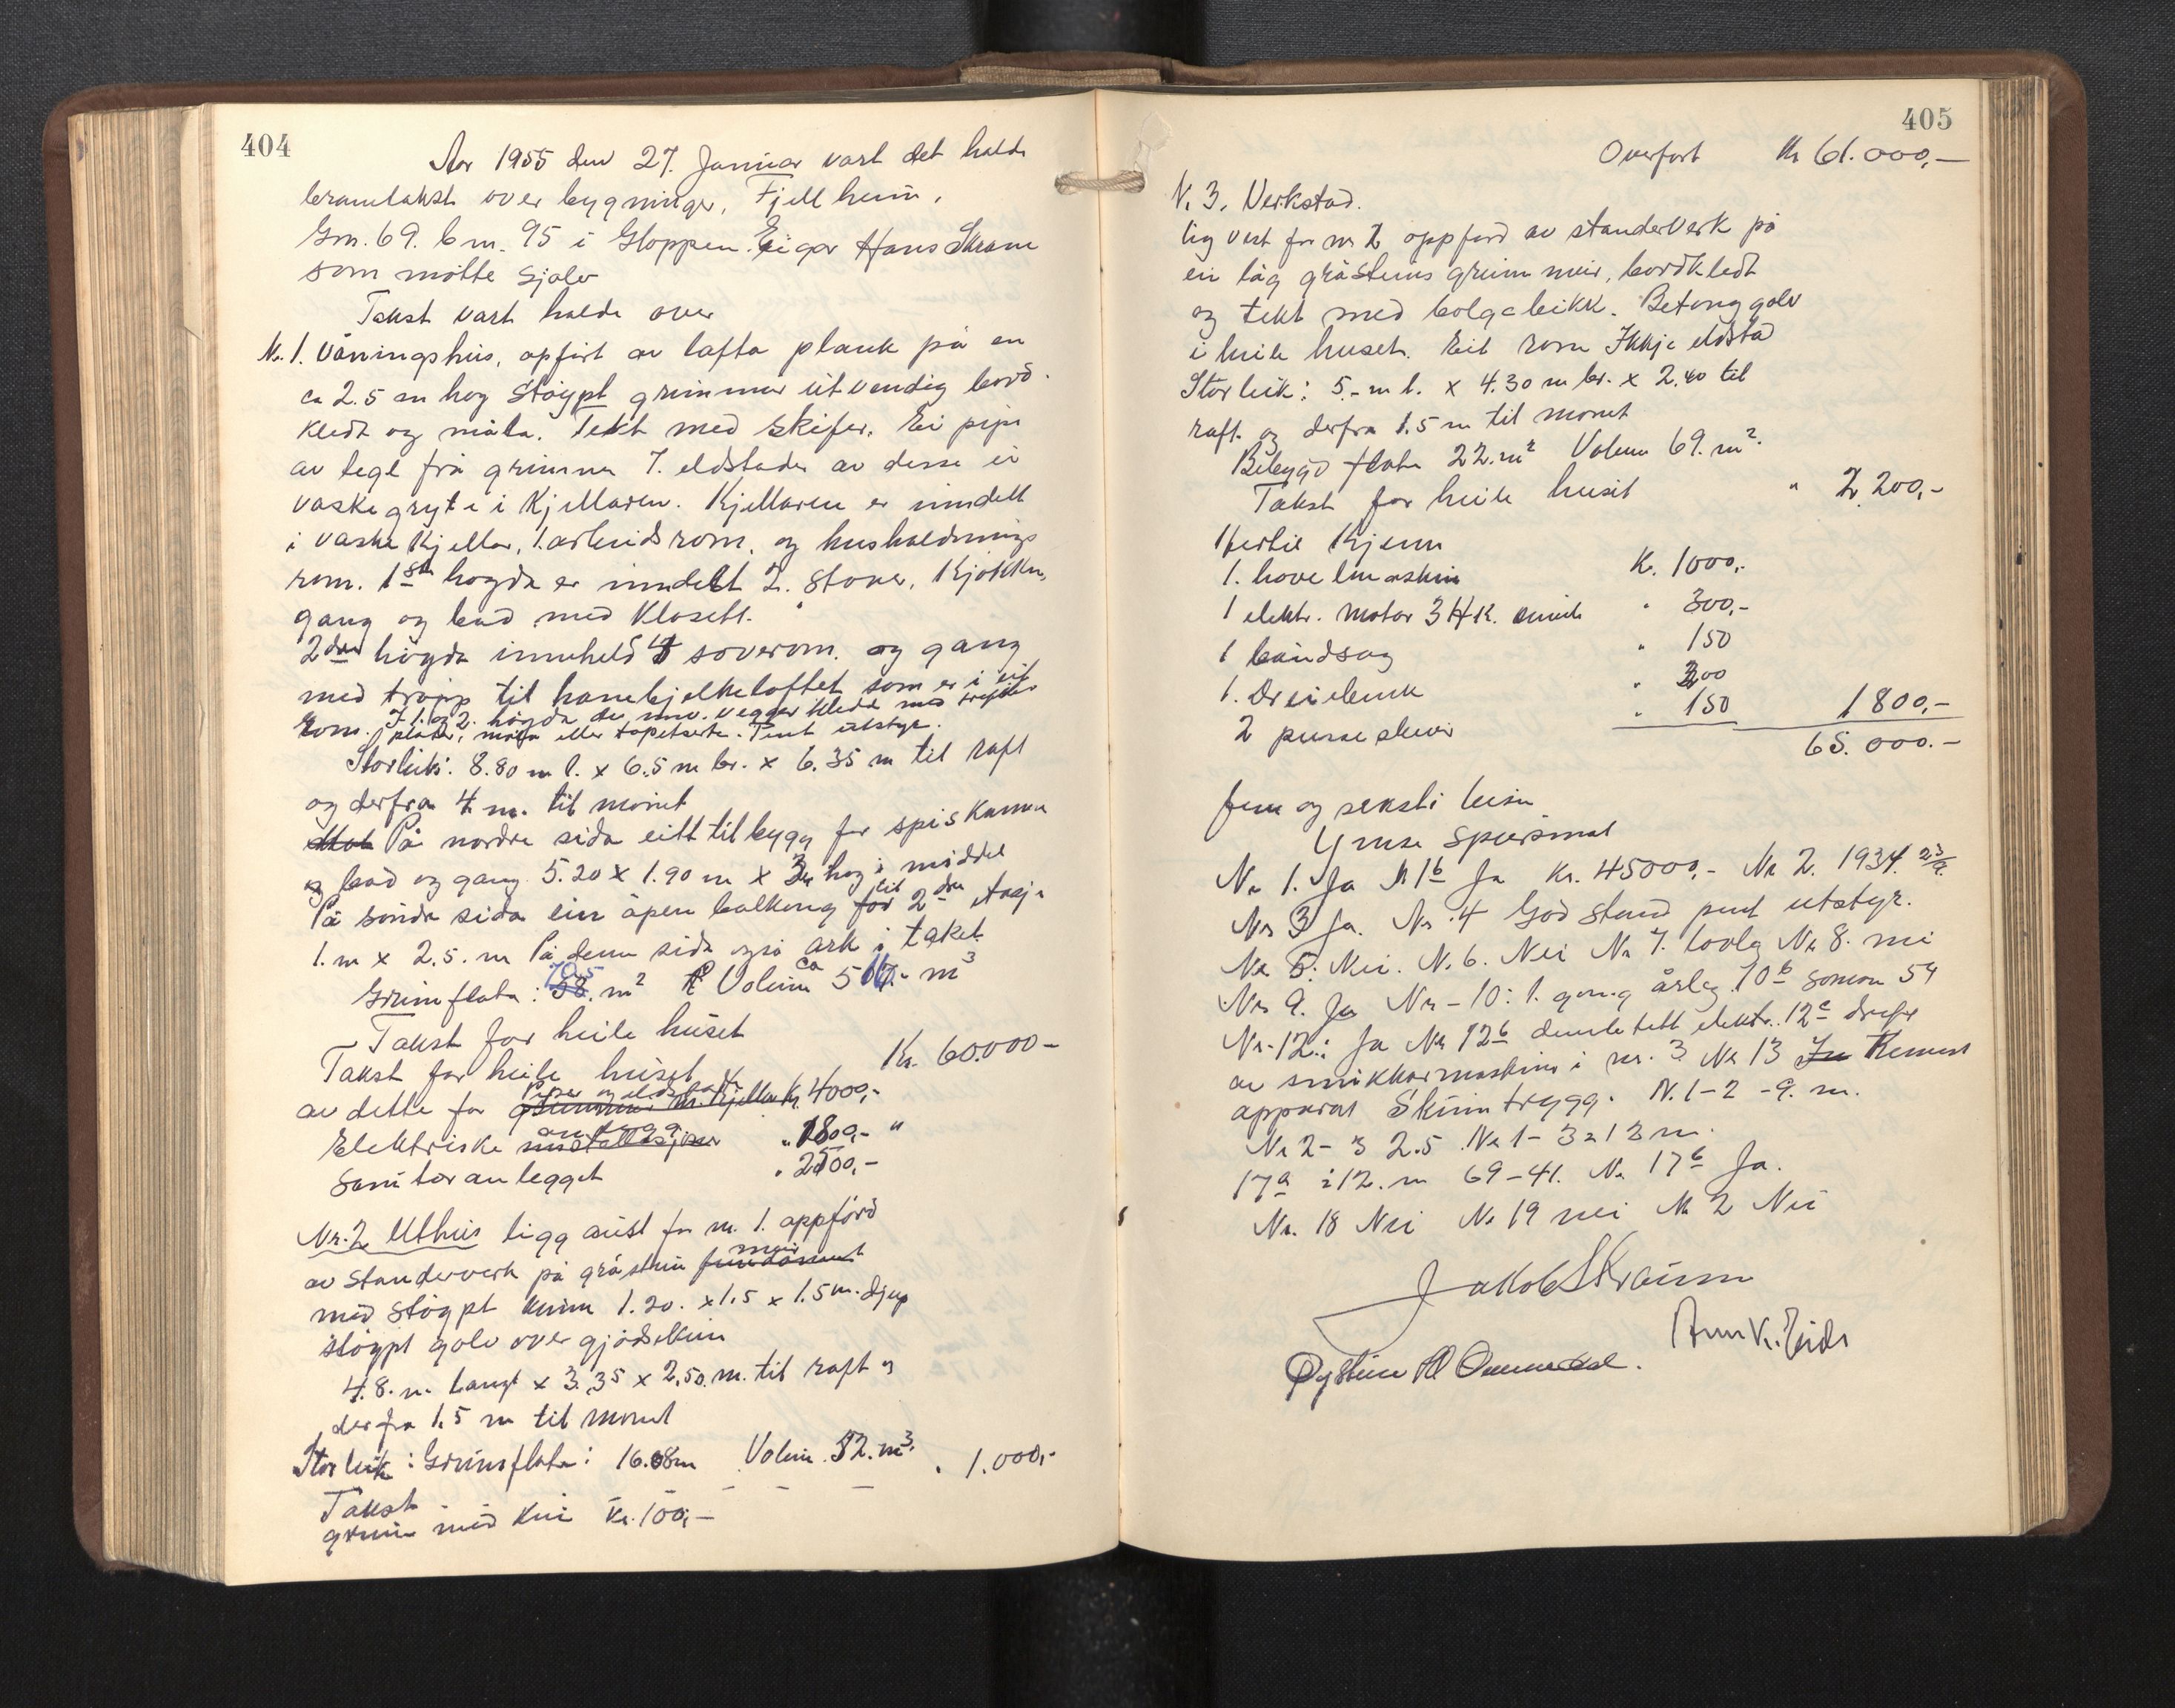 404
Aar 1955 den 27. Januar vart det halde
branntakst over bygningar, Fjellheim,
Gnr. 69. bnr. 95 i Gloppen. Eigar Hans Skraue
som møtte sjølv
Takst vart halde over
Nr. 1. Våningshus, opfört av lafta plank på en
ca 2.5 m høg støypt grunnmur utvendig bord-
kledt og måla. Tekt med skifer. Ei pipe
av tegl frå grunnen 7. eldstader av desse ei
vaskegryte i Kjellaren. Kjellaren er inndelt
i vaskekjellar, 1. arbeidsrom, og hushaldnings
rom. 1ste høgda er inndelt 2. stover, Kjøkken,
gang og bad med Klosett.
2dre høgda inneheld 4 soverom. og gang
med trapp til hanebjelkeloftet som er i eit
rom. I 1. og 2. høgda er innv. vegger kledd med trefiber
plater, måla eller tapetserte. Pent utstyr.
Storleik: 8.80 m l. x 6.5 m br. x 6.35 m til raft
og derfra 4 m. til mønet
På nordre sida eitt tilbygg for spiskammer
og bad og gang 5.20 x 1.90 m x 3 høg i middel
På søndre sida ein åpen balkong til 2dre etasje
1. m x 2.5. m På denne sida også ark i taket
Grunnflata: 70.5 m² Volum ca 517.- m³
Takst for heile huset
Takst for heile huset Kr. 60.000 -
av dette for Piper og eldstader Kr. 4000,-
Elektriske anlegg " 1800,- "
Sanitæranlegget " 2500,-
Nr. 2 Uthus ligg aust for nr. 1. oppförd
av standerverk på gråstein mur
med støypt kum 1.20. x 1.5 x 1.5 m. djup
støypt golv over gjødselkum
4.8. m. langt x 3.35 x 2.50. m. til raft og
derfra 1.5 m til mønet
Storleik: Grunnflata: 16.08 m Volum 52. m³.
Takst " 1.000,-
grunn med kum Kr. 100,-
405
Overført Kr 61.000,-
N. 3. Verkstad.
lig vest for nr 2 oppförd av standerverk på
ein låg gråsteins grunnmur, bordkledt
og tekt med bølgeblikk. Betonggolv
i heile huset. Eit rom Ikkje eldstad
Storleik: 5.- m l. x 4.30 m br. x 2.40 til
raft og derfra 1.5 m til mønet
Bebygd flate 22. m² Volum 69. m².
Takst for heile huset " 2.200,-
Hertil Kjem
1. høvelmaskin Kr. 1000,-
1 elektr. motor 3 HK. " 300,-
1 bandsag " 150
1. Dreiebenk " 200
2 pusseskiver " 150 1800,-
65.000.-
fem og seksti tusen
Ymse spørsmål
Nr 1. Ja Nr 1b Ja Kr. 45000,- Nr 2. 1934. 23/9.
Nr 3 Ja. Nr. 4 God stand pent utstyr.
Nr 5. Nei. Nr. 6. Nei Nr 7. lovleg Nr 8. nei
Nr 9. Ja Nr - 10: 1. gong årleg 10b somm 54
Nr. 12.: Ja Nr 12b elektr. 12c
av snikkarmaskiner i nr. 3. Nr 13 Kemest
apparat Skum trygg. N. 1-2 - 9. m.
Nr 2 - 3 2.5 Nr 1 - 3 = 13 m.
17a : 12. m 69-41. Nr 17b Ja.
Nr. 18 Nei Nr 19 nei Nr 2 Nei
Jakob Skraum